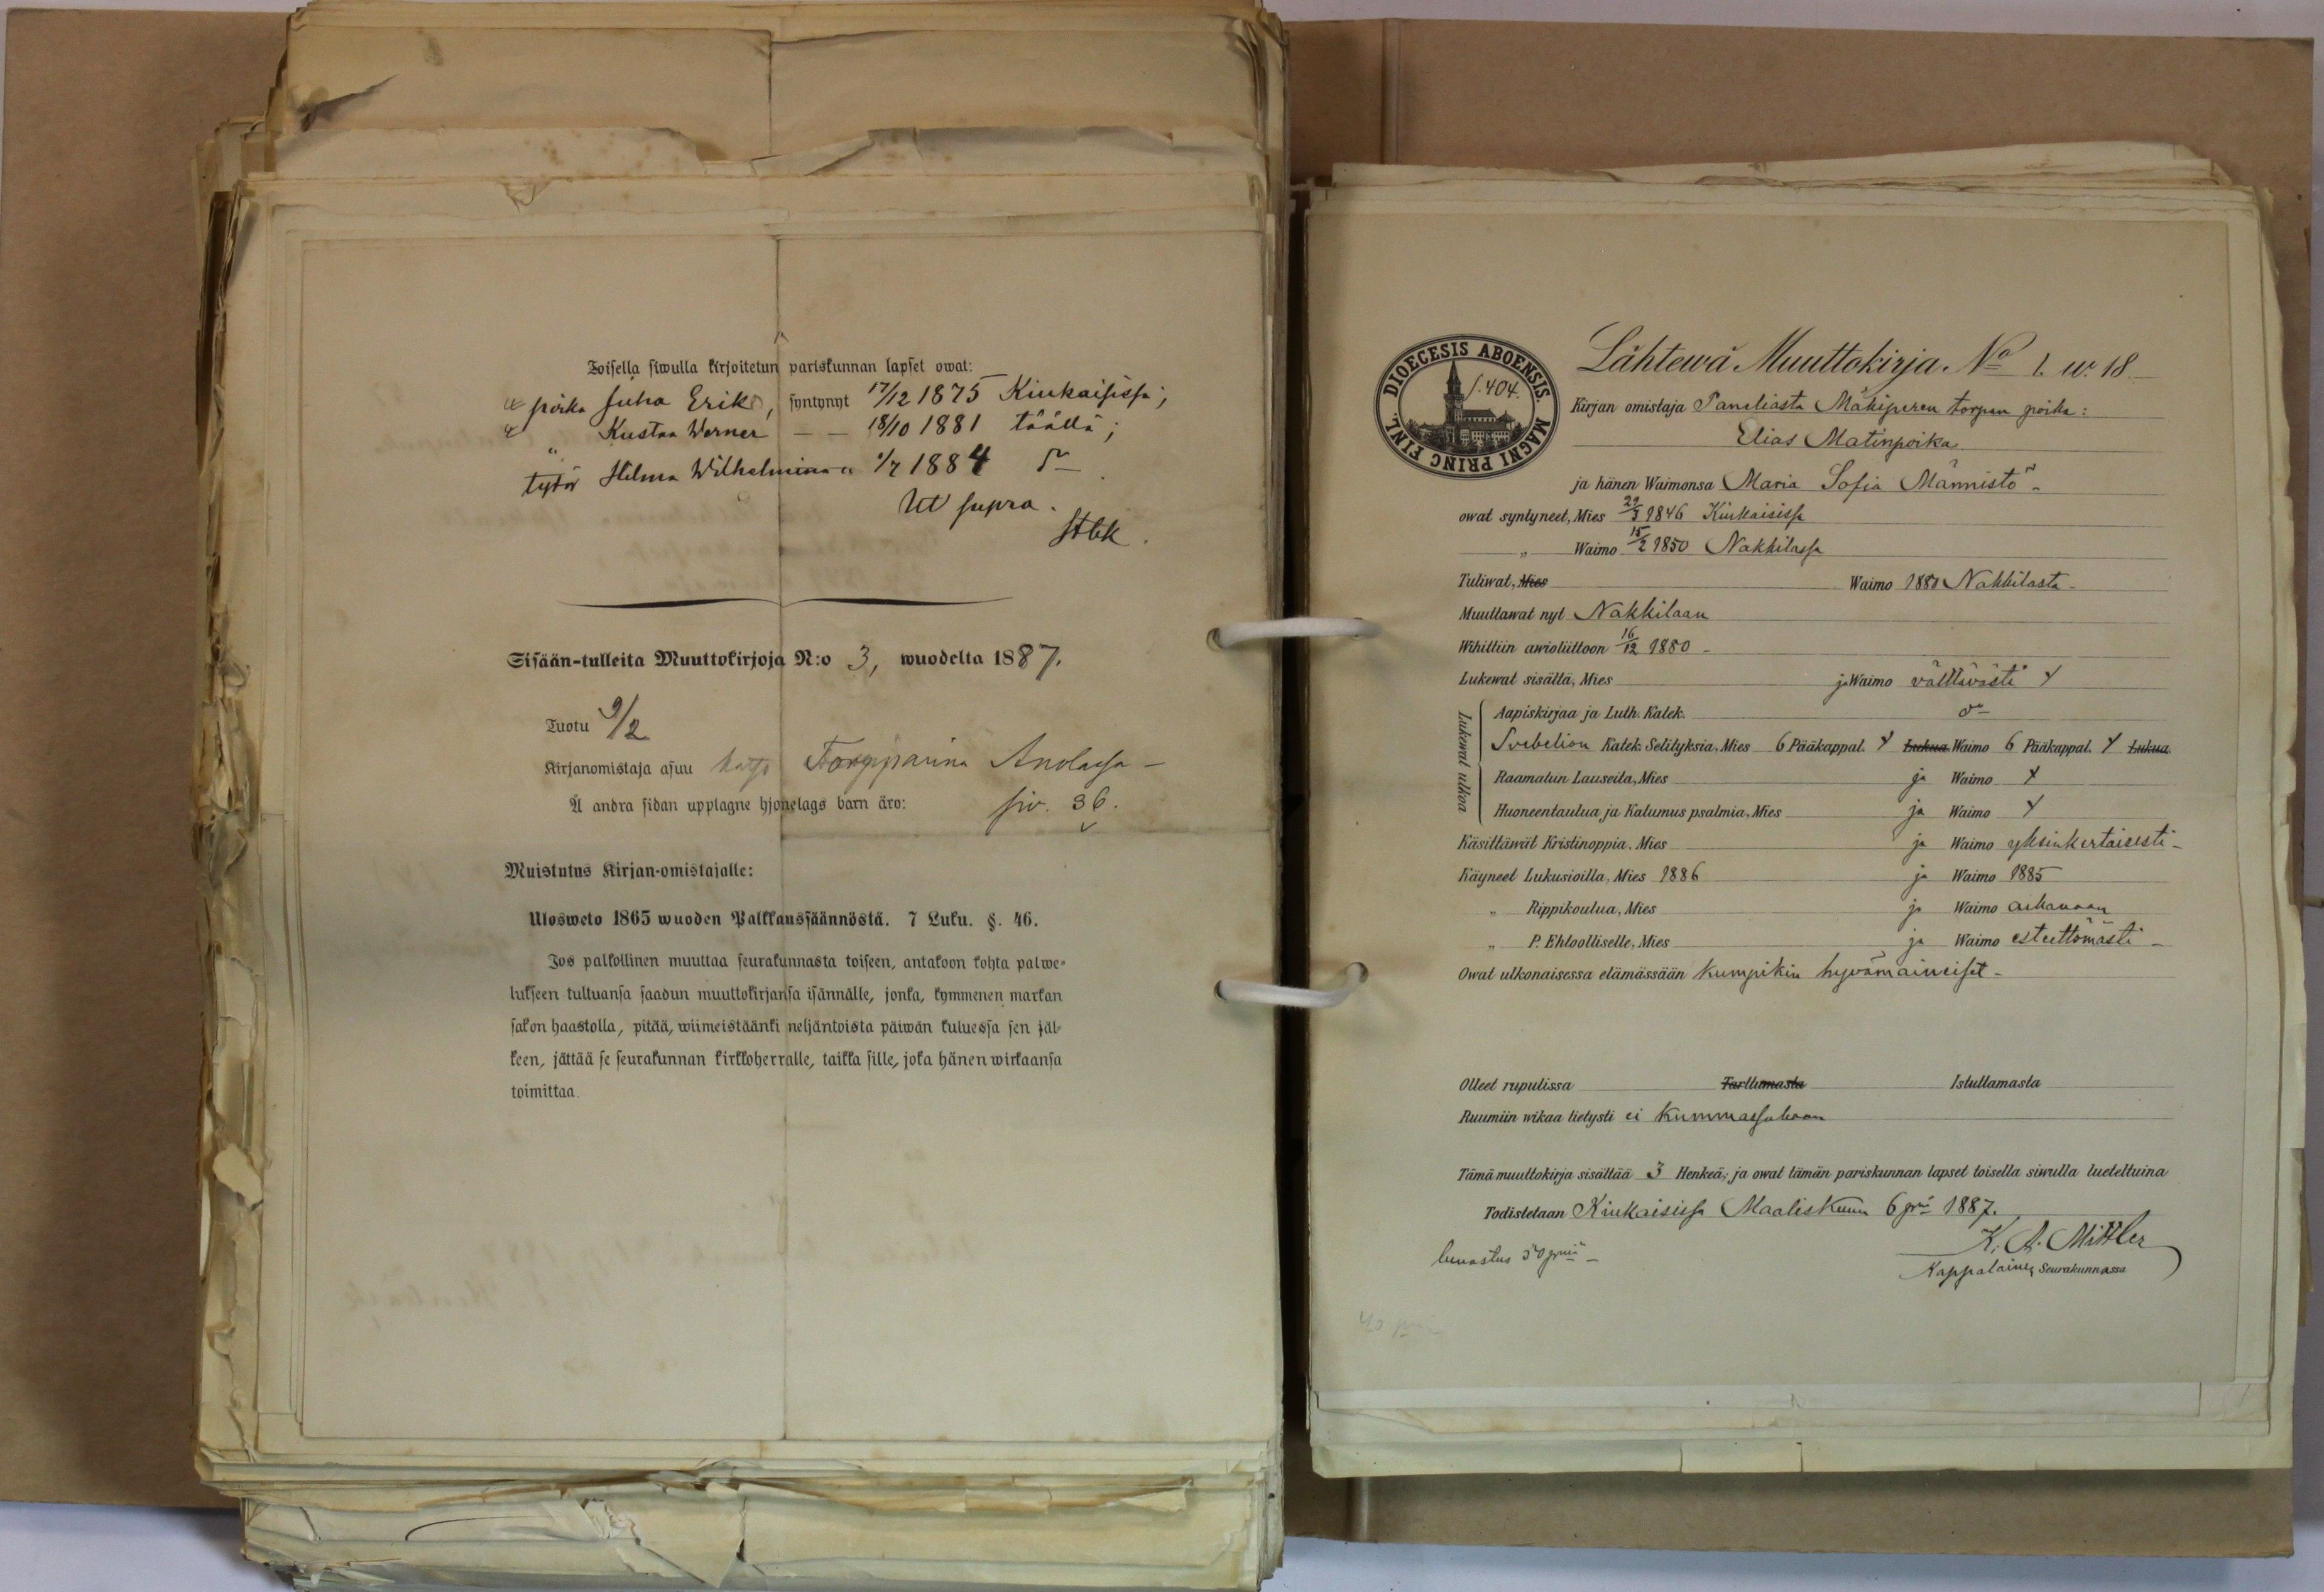 Toisella siwulla kirjoitetun pariskunnan lapset owat:
poika Juha Erik, syntynyt 17/12 1875 Kiukaisissa;
" Kustaa Werner — — 18/10 1881 täällä;
tytär Hilma Wilhelmina 1/7 1884 Dº
Ut supra.
Sisään-tulleita Muuttokirjoja N:o 3, wuodelta 1887.
Tuotu 9/2
Kirjanomistaja asuu katso Torpparina Anolassa —
Å andra sidan upplagne hjonelags barn äro: siv. 36.
Muistutus Kirjan-omistajalle:
Ulosweto 1865 wuoden Palkkaussäännöstä. 7 Luku. §. 46.
Jos palkollinen muuttaa seurakunnasta toiseen, antakoon kohta palwe-
lukseen tultuansa saadun muuttokirjansa isännälle, jonka, kymmenen markan
sakon haastolla, pitää, wiimeistäänki neljäntoista päiwän kuluessa sen jäl-
keen, jättää se seurakunnan kirkkoherralle, taikka sille, joka hänen wirkaansa
toimittaa.
DIOECESIS ABOENSIS. MAGNI PRINC FINL.
s. 404.
Lähtewä Muuttokirja. No 1. w. 18
Kirjan omistaja Paneliasta Mäkiperen torpan poika:
Elias Matinpoika
ja hänen Waimonsa Maria Sofia Männistö
owat syntyneet, Mies 29/3 1846 Kiukaisissa
„ Waimo 15/2 1850 Nakkilassa
Tuliwat, Mies Waimo 1880 Nakkilasta
Muuttawat nyt Nakkilaan
Wihittiin awioliittoon 16/12 1880
Lukewat sisältä, Mies ja Waimo välttävästi
Lukewat ulkoa
Aapiskirjaa ja Luth. Katek.
Svebelion Katek. Selityksiä, Mies 6 Pääkappal. Lukua Waimo 6 Pääkappal. Lukua
Raamatun Lauseita, Mies ja Waimo
Huoneentaulua ja Katumus psalmia, Mies ja Waimo
Käsittäwät Kristinoppia, Mies ja Waimo yksinkertaisesti
Käyneet Lukusioilla, Mies 1886 ja Waimo 1885
„ Rippikoulua, Mies ja Waimo aikanaan
„ P. Ehtoolliselle, Mies ja Waimo esteettömästi
Owat ulkonaisessa elämässään kumpikin hyvämaineiset
Olleet rupulissa Tarttumasta Istuttamasta
Ruumiin wikaa tietysti ei kummassakaan
Tämä muuttokirja sisältää 3 Henkeä; ja owat tämän pariskunnan lapset toisella siwulla lueteltuina
Todistetaan Kiukaisissa Maaliskuun 6 pnä 1887.
K. A. Mittler
lunastus 50 pniä
Kappalainen Seurakunnassa